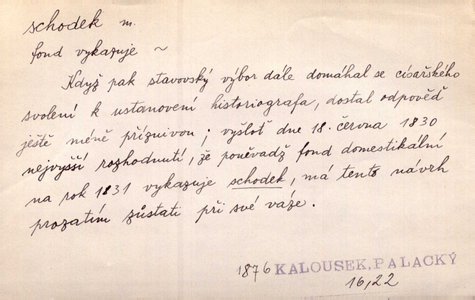 schodek m.
fond vykazuje ~
Když pak stavovský výbor dále domáhal se císařského
svolení k ustanovení historiografa, dostal odpověď
ještě méně příznivou; vyšloť dne 18. června 1830
nejvyšší rozhodnutí, že poněvadž fond domestikální
na rok 1831 vykazuje schodek, má tento návrh
prozatím zůstati při své váze.
1876 KALOUSEK, PALACKÝ
16,22